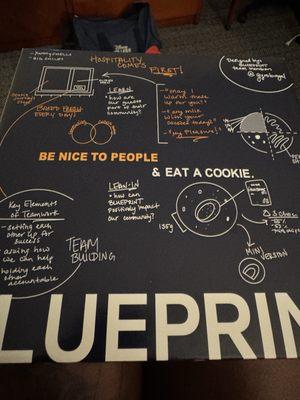 - YUMMY SMELLS
- BIG SMILES
HOSPITALITY
COMES FIRST!
LEARN
how are
our guests
part of our
community?
BAKED FRESH
EVERY DAY!
"may I
warm these
up for you?"
"any milk
with your
cookies today?"
"my pleasure!"
Designed by:
@
BE NICE TO PEOPLE
& EAT A COOKIE.
Key Elements
of Teamwork
- setting each
other up for
success
- asking how
we can help
- holding each
other
accountable
TEAM
BUILDING
LEAN-IN
how can
BLUEPRINT
positively impact
our community?
135g
MINI
VERSION
LUEPRIN